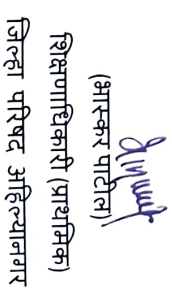 (भास्कर पाटील)
शिक्षणाधिकारी (प्राथमिक)
जिल्हा परिषद अहिल्यानगर